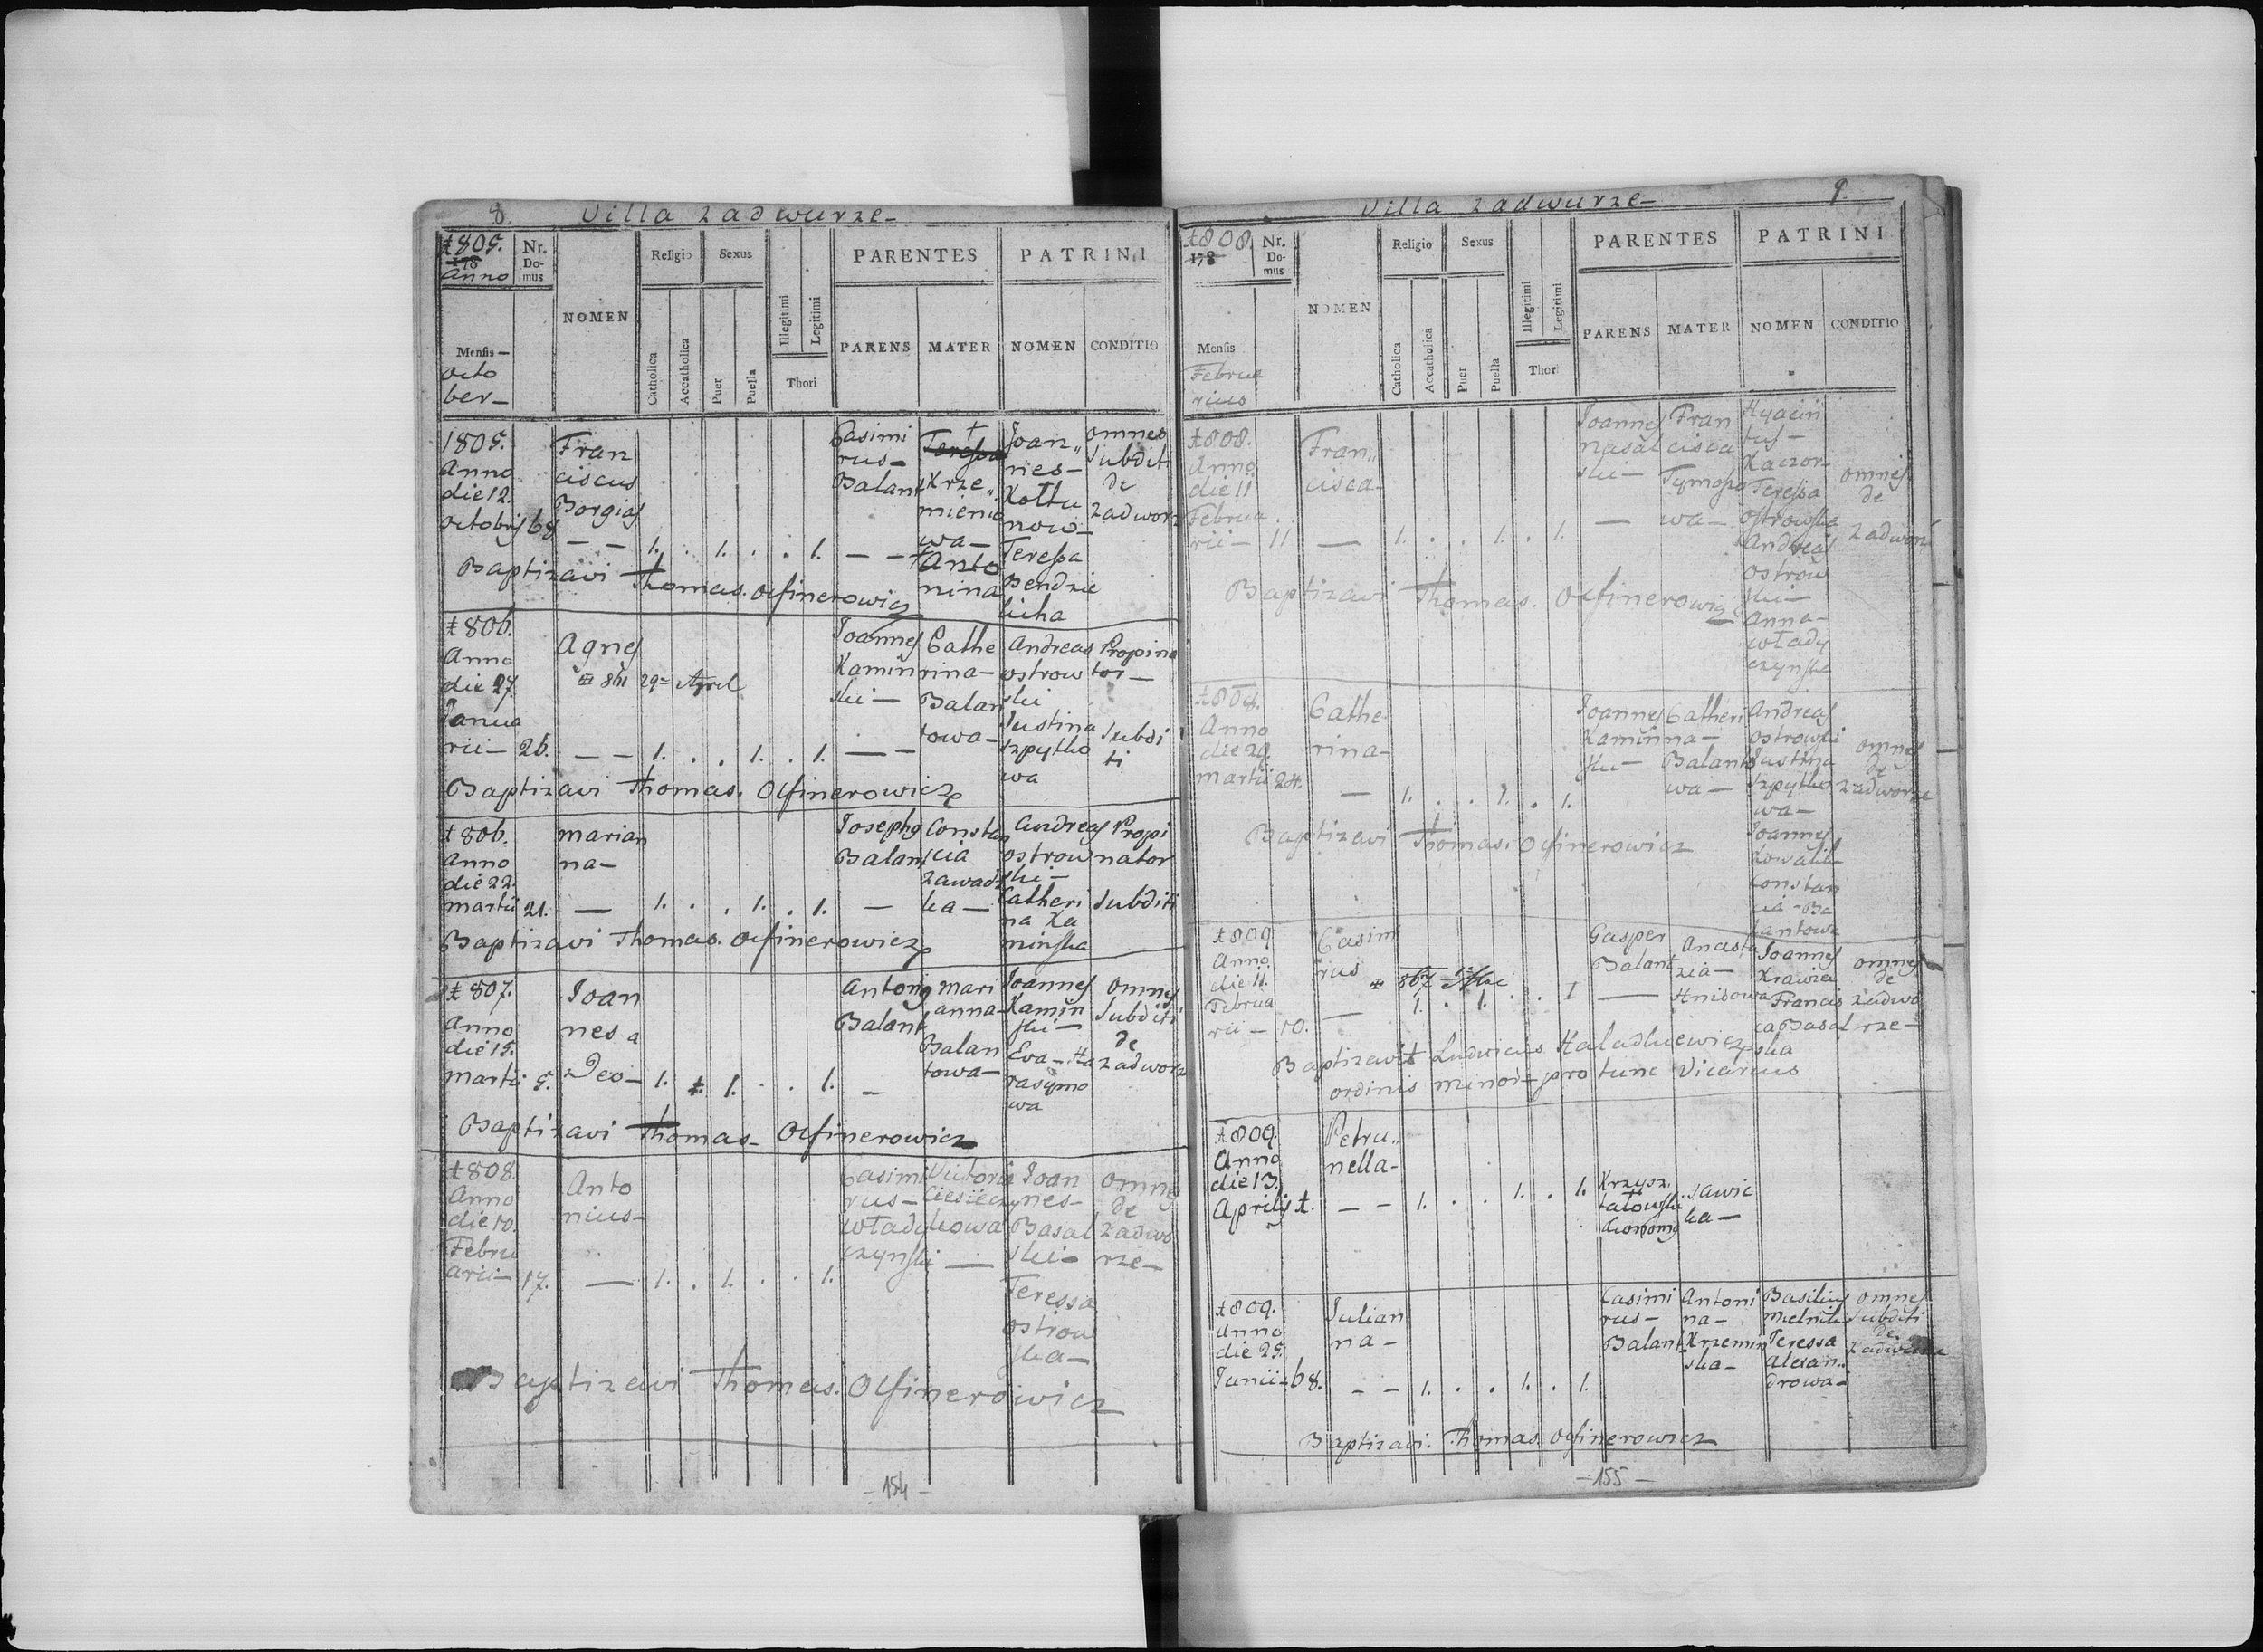 8. Villa Zadwurze
1805.
178
Anno
Nr. Domus
NOMEN
Religio
Sexus
Illegitimi
Legitimi
PARENTES
PATRINI
Mensis
Octo
ber
Catholica
Accatholica
Puer
Puella
Thori
PARENS
MATER
NOMEN
CONDITIO
1805. Anno die 12. Octobris 68
Franciscus Borgias
1. . 1. . . 1.
Casimirus Balant
Teressa Krzemieniowa
Antonina
Joannes Kołtunow
Teressa Bendzielicha
omnes Subditi de Zadworz
Baptizavi Thomas. Olfinerowicz
1806. Anno die 27. Januarii 26.
Agnes
811 29a April
1. . . 1. . 1.
Joannes Kamiński
Catherina Balantowa
Andreas Ostrowski
Justina Szpytkowa
Propinator
Subditi
Baptizavi Thomas. Olfinerowicz
1806. Anno die 22. Martii 21.
Marianna
1. . . 1. . 1.
Josephg Balant
Constancia Zawadzka
Andreas Ostrowski
Catherina Kaminska
Propinator
Subditi
Baptizavi Thomas. Olfinerowicz
1807. Anno die 15. Martii 5.
Joannes a Deo
1. . 1. . . 1.
Antong Balant
Marianna Balantowa
Joannes Kamiński
Eva Harasymowa
omnes Subditi de Zadworz
Baptizavi Thomas Olfinerowicz
1808. Anno die 10. Februarii 17.
Antonius
1. . 1. . . 1.
Casimirus Władyczynski
Victoria
Joannes Basalski
Teressa Ostrowska
omnes de Zadworze
Baptizavi Thomas. Olfinerowicz
- 154 -
Villa Zadwurze 9.
1808.
178
Nr. Domus
NOMEN
Religio
Sexus
Illegitimi
Legitimi
PARENTES
PATRINI
Mensis
Februarius
Catholica
Accatholica
Puer
Puella
Thori
PARENS
MATER
NOMEN
CONDITIO
1808. Anno die 11 Februarii 11
Francisca
1. . . 1. . 1.
Joannes
Francisca
Hyacintus Kaczor
Teressa Ostrowska
Andreas Ostrowski
Anna Władyczynska
omnes de Zadworz
Baptizavi Thomas. Olfinerowicz
1808. Anno die 29. Martii 24.
Catherina
1. . . 1. . 1.
Joannes Kaminski
Catherina Balantowa
Andreas Ostrowski
Justina Szpytkowa
Joannes Kowalik
Constancia Balantowa
omnes de Zadworze
Baptizavi Thomas. Olfinerowicz
1809 Anno. die 11. Februarii 10.
Casimirus
1. . 1. . . 1
Gasper Balant
Anastazia Hnidowa
Joannes Krawiec
Francisca Basalska
omnes de Zadworze
Baptizavit Ludvicus Haladkiewicz
ordinis minor pro tunc Vicarius
1809. Anno die 13. Aprilis 1.
Petrunella
1. . . 1. . 1.
Krzysztalowski
Sawicka
1809. Anno die 25. Junii 68.
Julianna
1. . . 1. . 1.
Casimirus Balant
Antonina Krzeminska
Basilius Mielnik
Teressa Alexandrowa
omnes Subditi de
Baptizavi. Thomas. Olfinerowicz
- 155 -